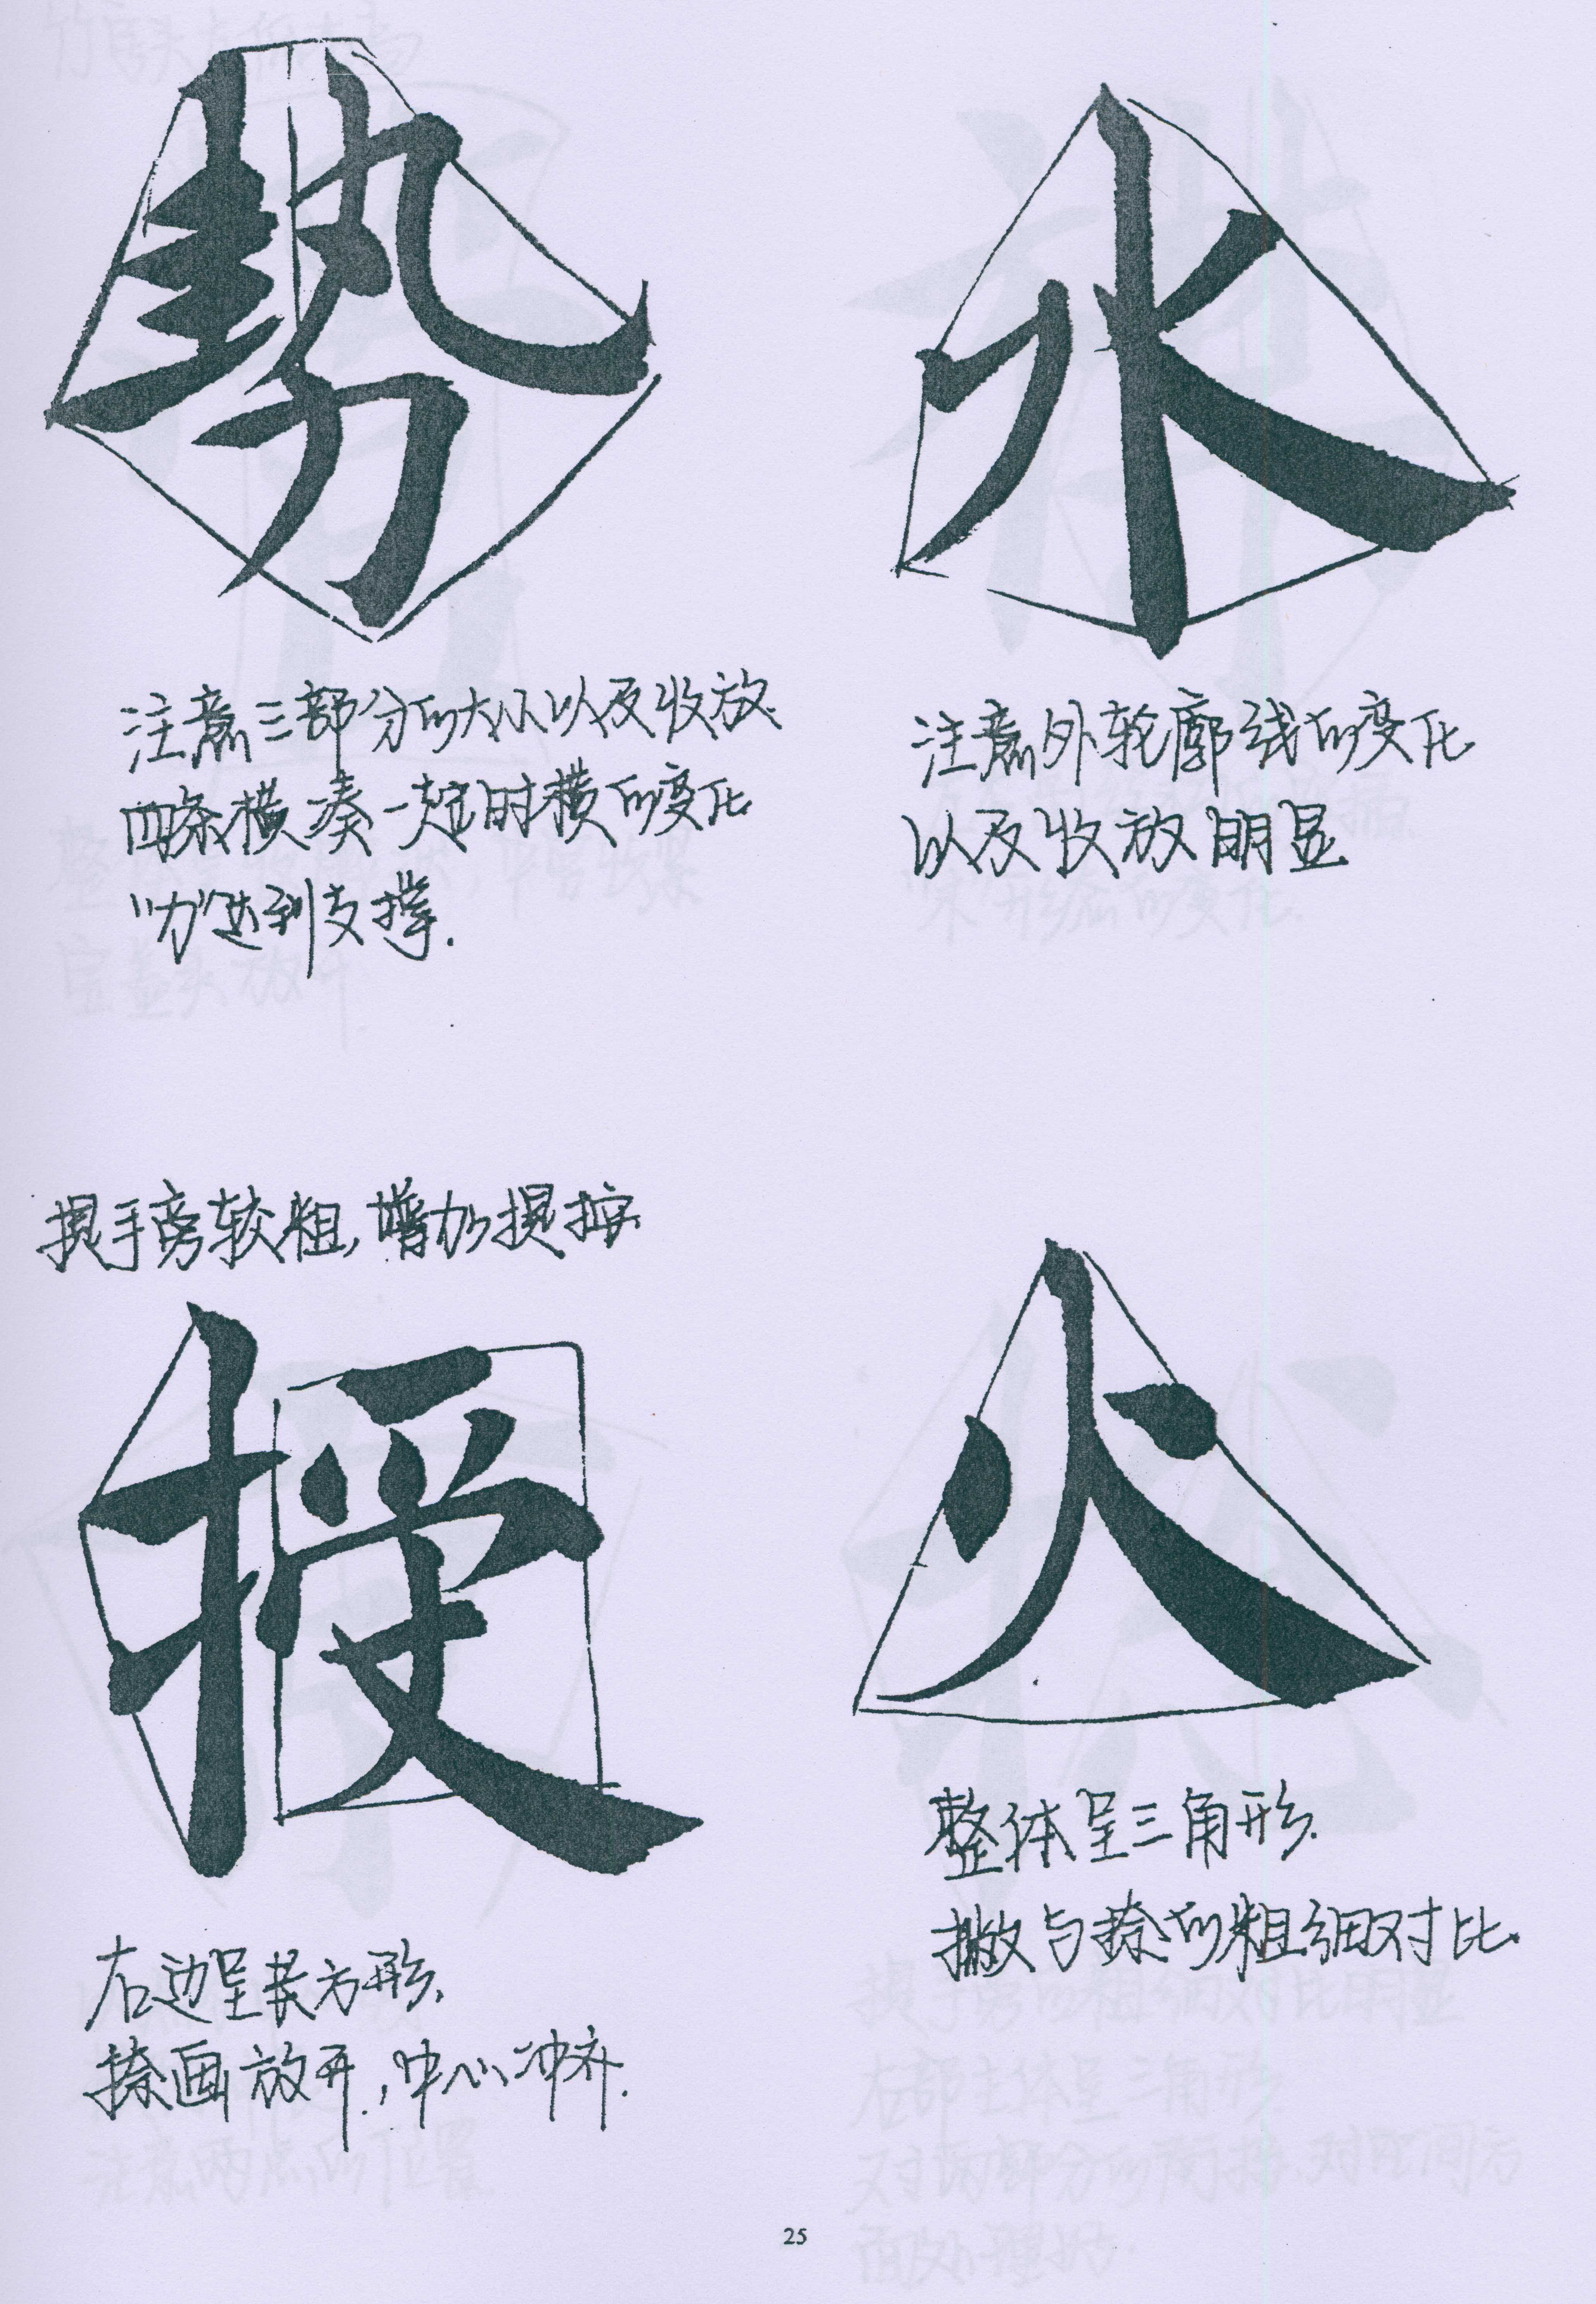 勢
注意三部分的大小以及收放.
四条横凑一起时横的变化
“力”达到支撑.
水
注意外轮廓线的变化
以及收放明显.
提手旁较粗,增加提按.
授
右边呈长方形.
捺画放开,中心冲齐.
火
整体呈三角形.
撇与捺的粗细对比.
25